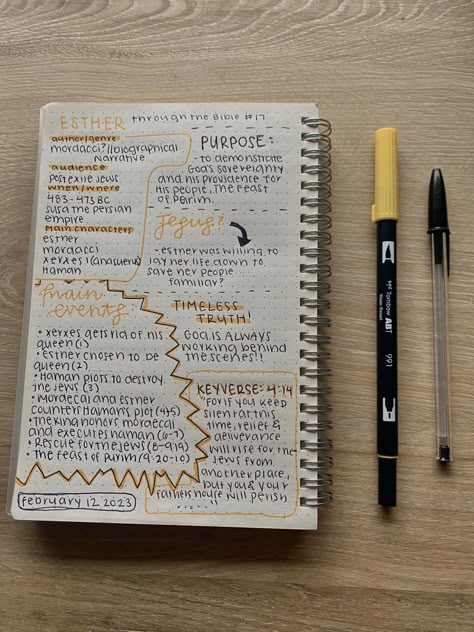 ESTHER through the Bible #17
author/genre
mordacci?//biographical
narrative
audience
post exile Jews
when/where
483-473 BC
susa the persian
empire
main characters
esther
mordacci
xerxes 1
Haman
PURPOSE:
- to demonstrate
God's sovereignty
and his providence for
His people, the feast
of Purim.
Jesus?
- esther was willing to
lay her life down to
save her people.
familiar?
main
events
• xerxes gets rid of his
queen (1)
• esther chosen to be
queen (2)
• Haman plots to destroy
the Jews (3)
• Mordecai and esther
counters Haman's plot (4-5)
• The king honors mordecai
and executes haman (6-7)
• Rescue for the Jews (8-9:19)
• The feast of Purim (9:20-10)
february 12 2023
TIMELESS
TRUTH!
God is ALWAYS
working behind
the scenes!!
KEYVERSE: 4:14
"for if you keep
silent at this
time, relief &
deliverance
will rise for the
Jews from
another place,
but you & your
father's house will perish
......"
Tombow ABT
991